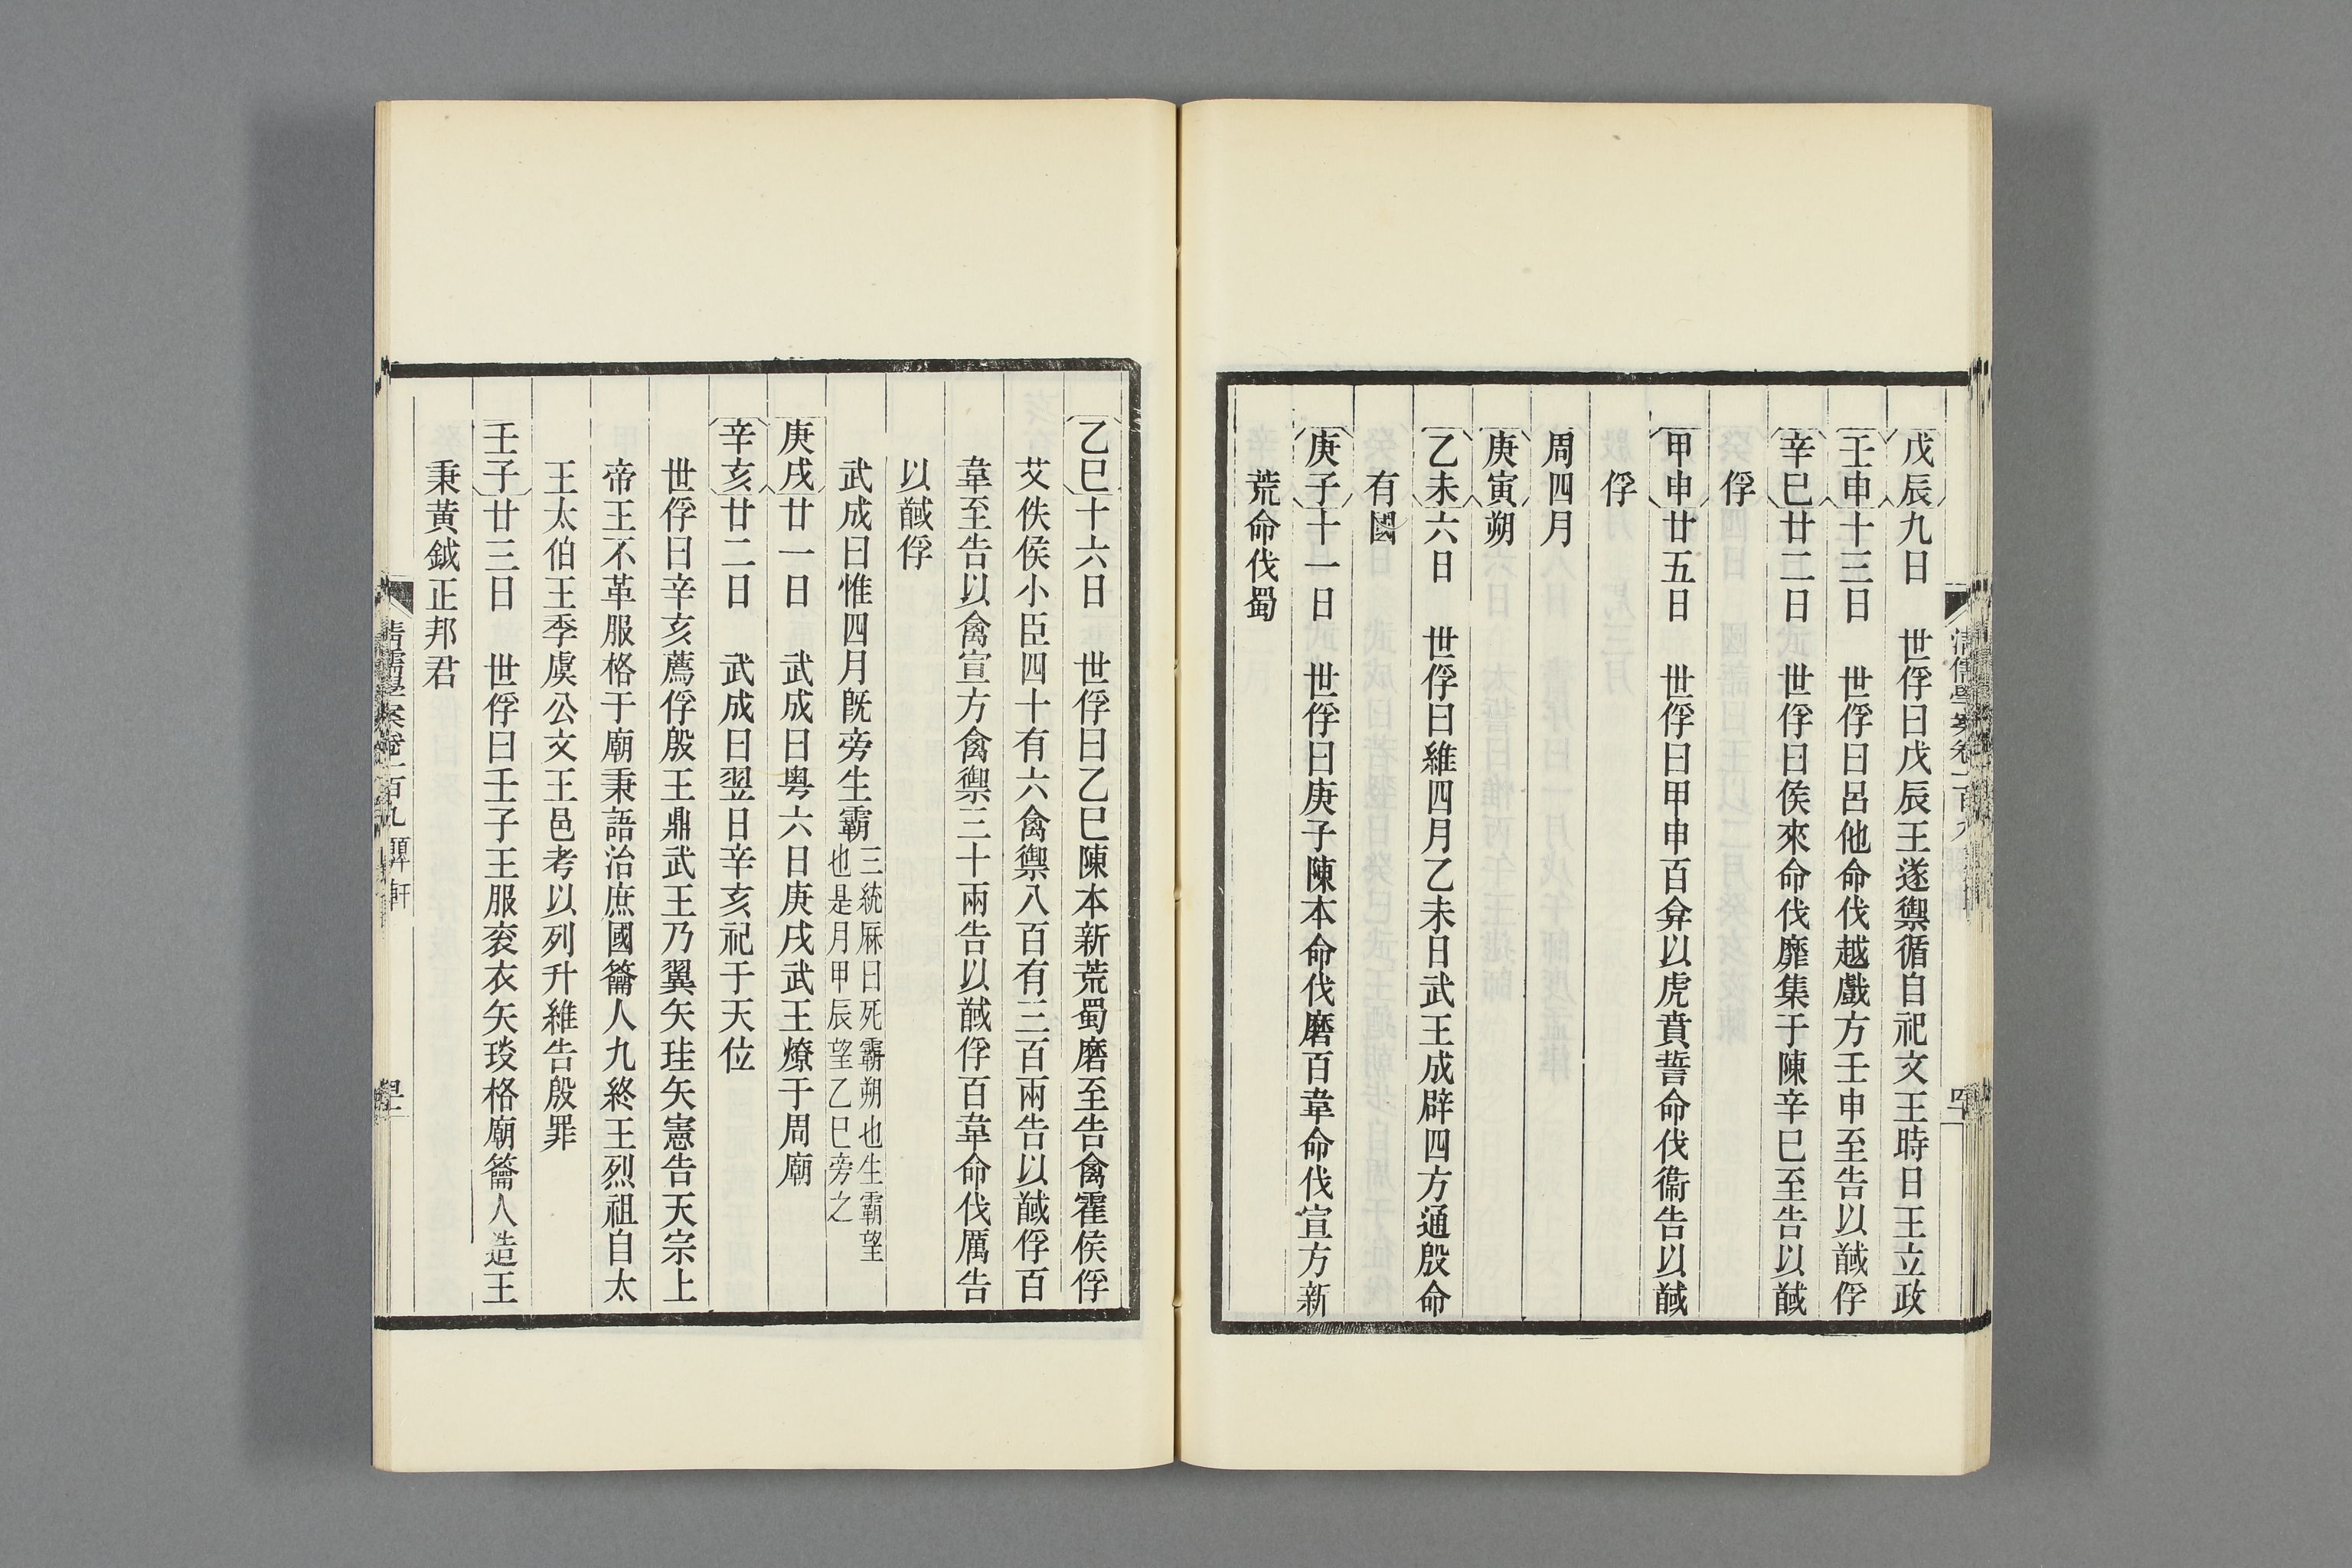 戊辰九日　世俘曰戊辰王遂禦循自祀文王時日王立政
壬申十三日　世俘曰呂他命伐越戲方壬申至告以馘俘
辛巳廿二日　世俘曰侯來命伐靡集于陳辛巳至告以馘
俘
甲申廿五日　世俘曰甲申百弇以虎賁誓命伐衞告以馘
俘
周四月
庚寅朔
乙未六日　世俘曰維四月乙未日武王成辟四方通殷命
有國
庚子十一日　世俘曰庚子陳本命伐磨百韋命伐宣方新
荒命伐蜀
乙巳十六日　世俘曰乙巳陳本新荒蜀磨至告禽霍侯俘
艾佚侯小臣四十有六禽禦八百有三百兩告以馘俘百
韋至告以禽宣方禽禦三十兩告以馘俘百韋命伐厲告
以馘俘
武成曰惟四月旣旁生霸三統厤曰死霸朔也生霸望
也是月甲辰望乙巳旁之
庚戌廿一日　武成曰粤六日庚戌武王燎于周廟
辛亥廿二日　武成曰翌日辛亥祀于天位
世俘曰辛亥薦俘殷王鼎武王乃翼矢珪矢憲告天宗上
帝王不革服格于廟秉語治庶國籥人九終王烈祖自太
王太伯王季虞公文王邑考以列升維告殷罪
壬子廿三日　世俘曰壬子王服衮衣矢琰格廟籥人造王
秉黃鉞正邦君
清儒學案卷一百九　顨軒